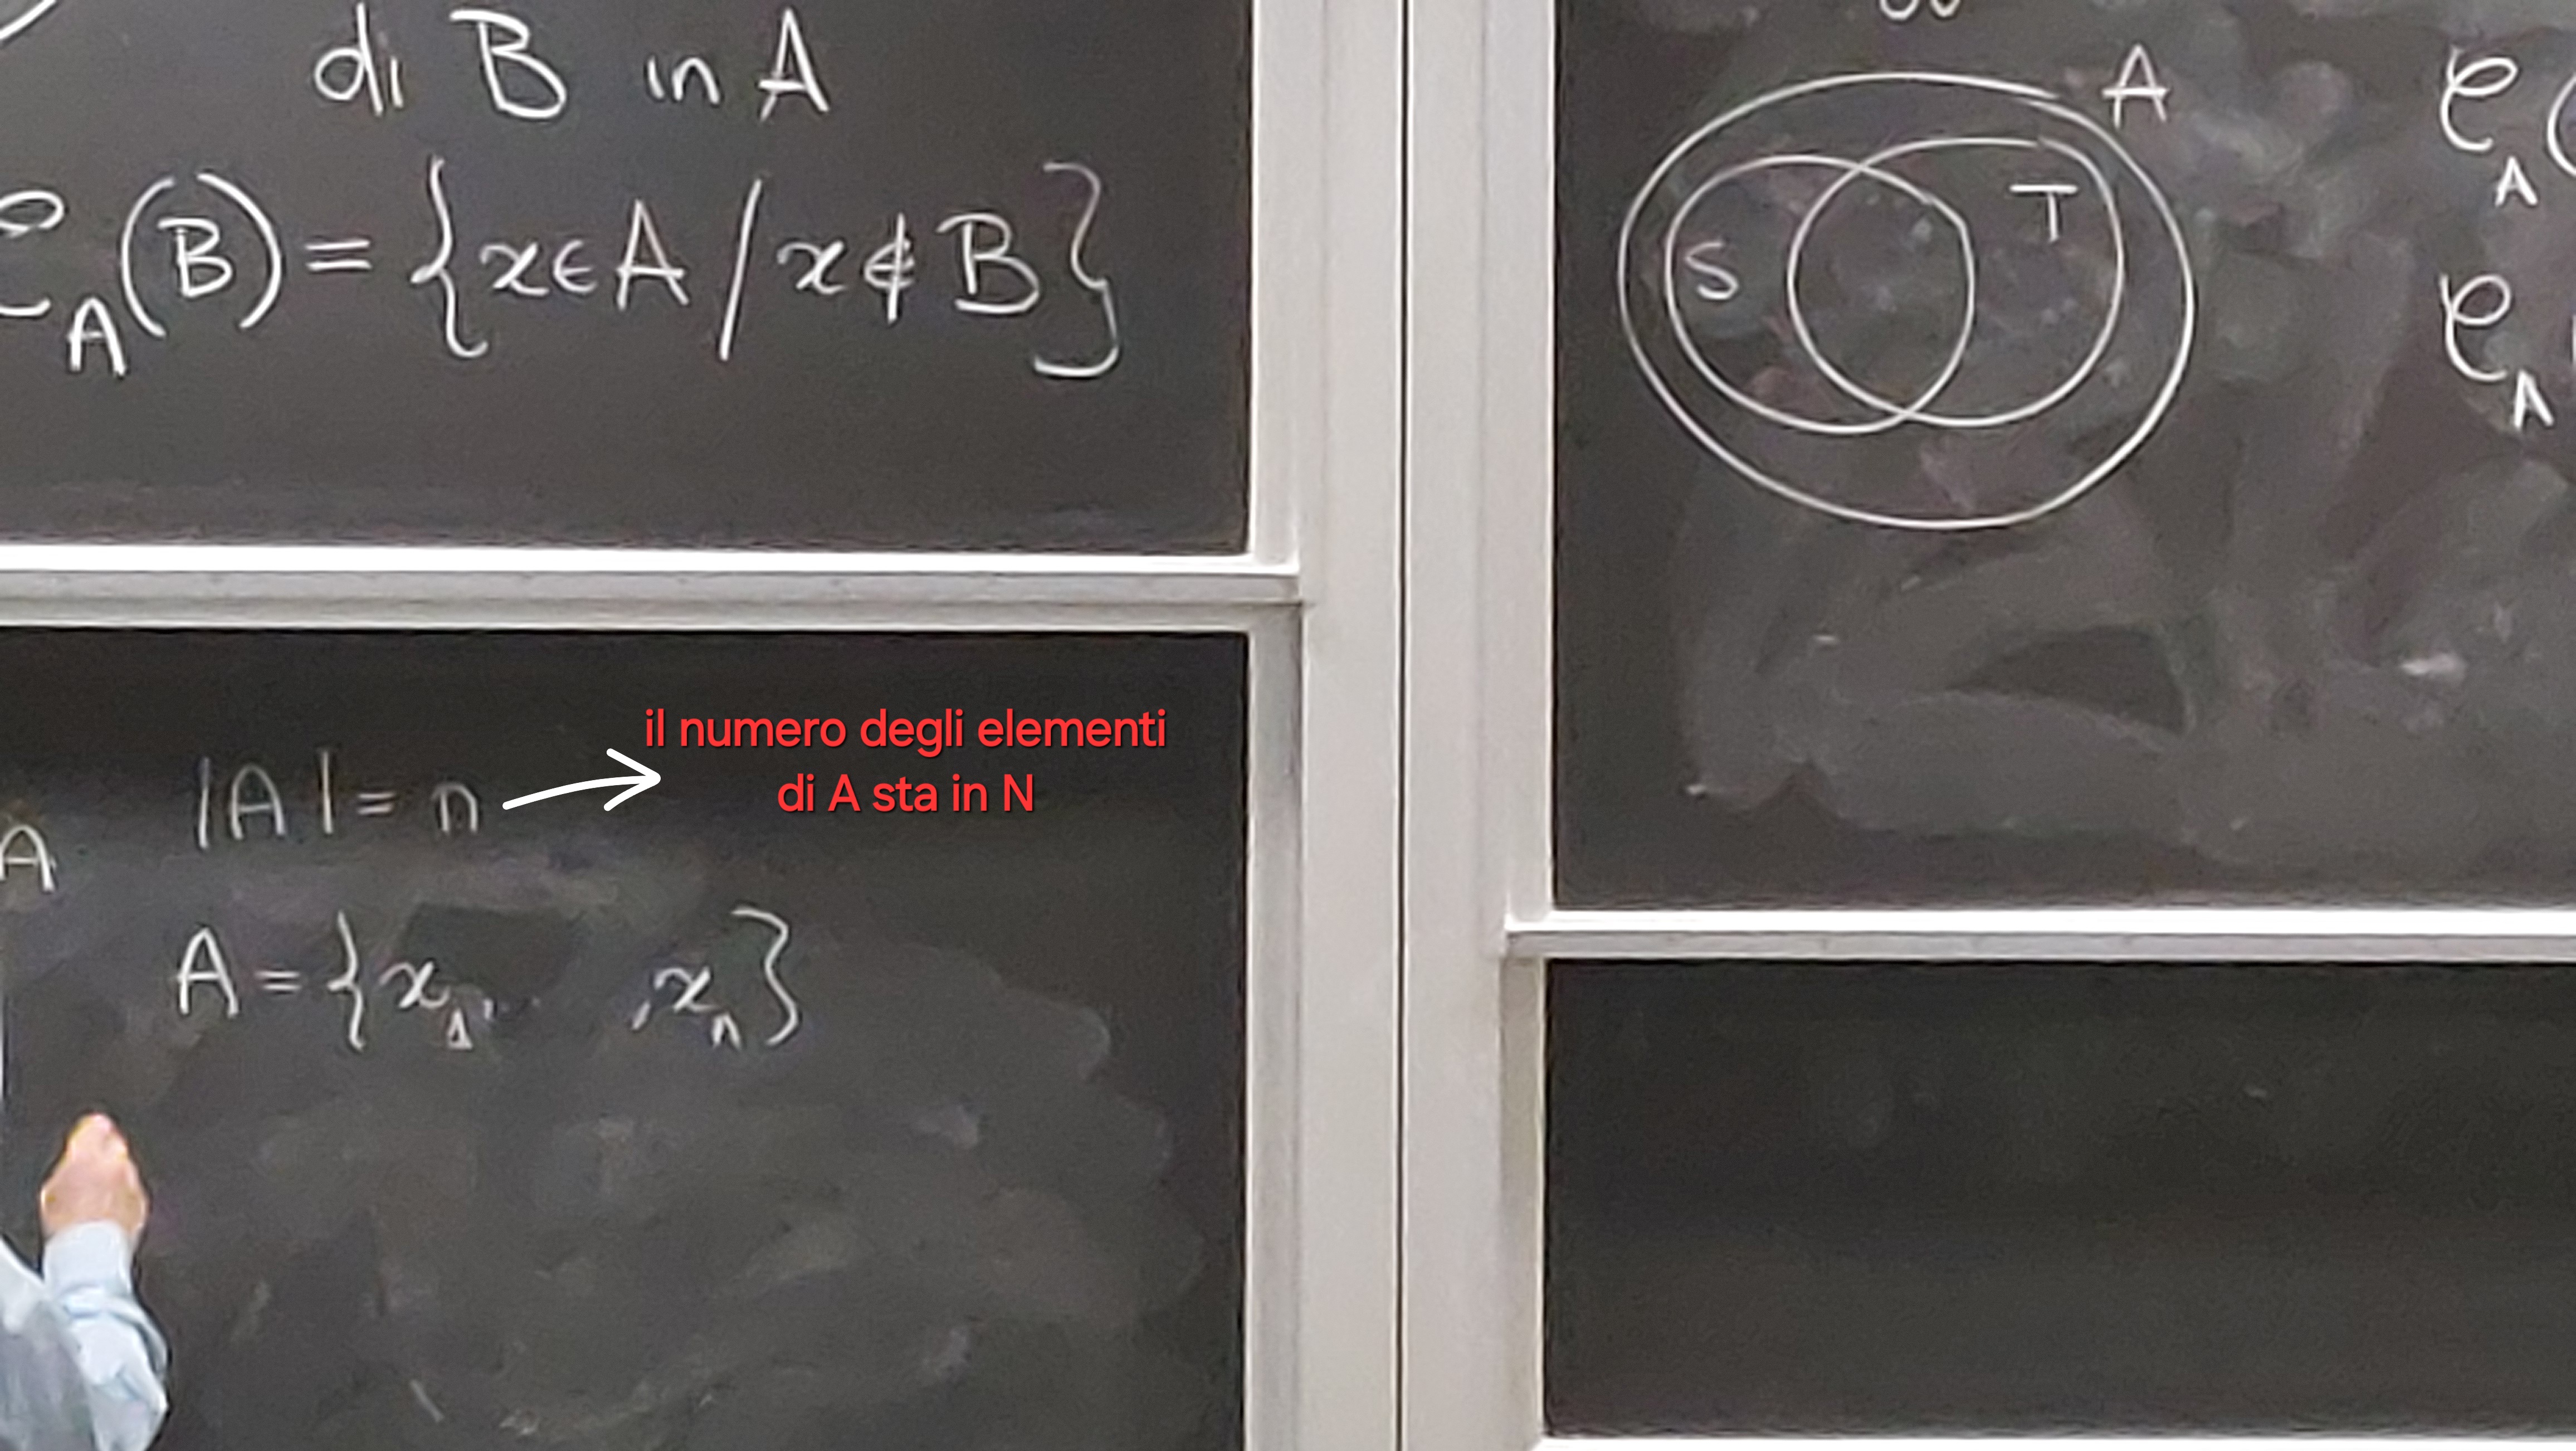 di B in A
C_A(B) = {x ∈ A / x ∉ B}
A
|A| = n
il numero degli elementi
di A sta in N
A = {x₁, .. , xₙ}
A
S
T
C_A (
C_A